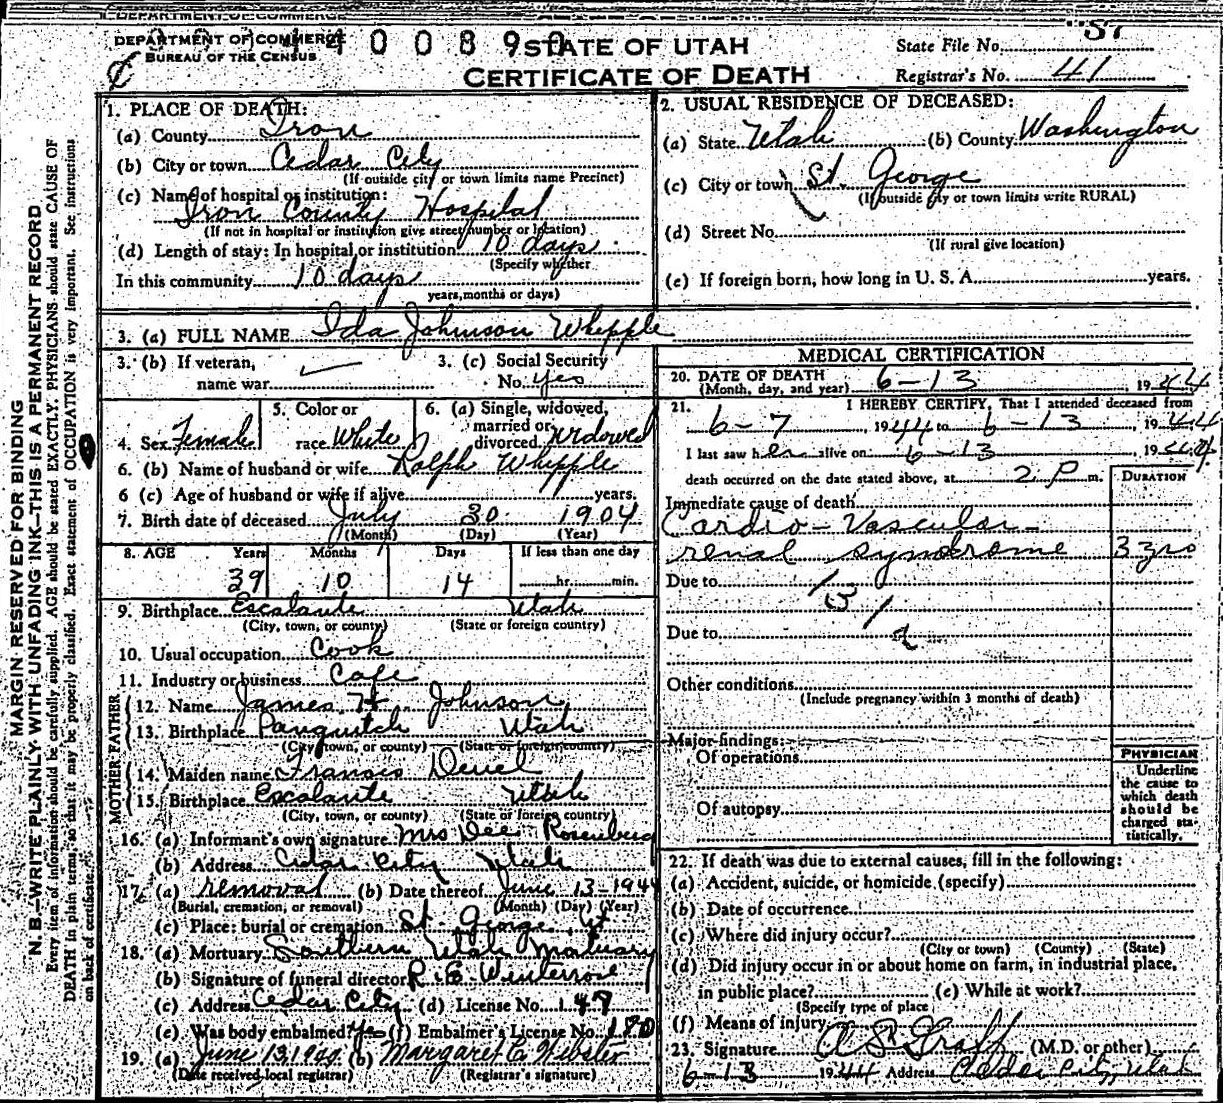 DEPARTMENT OF COMMERCE
BUREAU OF THE CENSUS
STATE OF UTAH
CERTIFICATE OF DEATH
State File No.
Registrar's No. 41
MARGIN RESERVED FOR BINDING
N. B.—WRITE PLAINLY WITH UNFADING INK—THIS IS A PERMANENT RECORD
Every item of information should be carefully supplied. AGE should be stated EXACTLY. PHYSICIANS should state CAUSE OF
DEATH in plain terms, so that it may be properly classified. Exact statement of OCCUPATION is very important. See instructions
on back of certificate.
1. PLACE OF DEATH:
(a) County Iron
(b) City or town Cedar City
(If outside city or town limits name Precinct)
(c) Name of hospital or institution:
Iron County Hospital
(If not in hospital or institution give street number or location)
(d) Length of stay: In hospital or institution 10 days
(Specify whether
In this community 10 days
years, months or days)
2. USUAL RESIDENCE OF DECEASED:
(a) State Utah (b) County Washington
(c) City or town St. George
(If outside city or town limits write RURAL)
(d) Street No.
(If rural give location)
(e) If foreign born, how long in U. S. A. years.
3. (a) FULL NAME Ida Johnson Whipple
3. (b) If veteran, name war
3. (c) Social Security No. yes
4. Sex Female
5. Color or race White
6. (a) Single, widowed, married or divorced widowed
6. (b) Name of husband or wife Ralph Whipple
6 (c) Age of husband or wife if alive years.
7. Birth date of deceased July 30 1904
(Month) (Day) (Year)
8. AGE Years Months Days If less than one day
39 10 14 hr. min.
9. Birthplace Escalante Utah
(City, town, or county) (State or foreign country)
10. Usual occupation Cook
11. Industry or business Cafe
FATHER
12. Name James H Johnson
13. Birthplace Panguitch Utah
(City, town, or county) (State or foreign country)
MOTHER
14. Maiden name Francis Deuel
15. Birthplace Escalante Utah
(City, town, or county) (State or foreign country)
16. (a) Informant's own signature Mrs Dee Rosenberg
(b) Address Cedar City Utah
17. (a) removal (b) Date thereof June 13-1944
(Burial, cremation, or removal) (Month) (Day) (Year)
(c) Place: burial or cremation St. George Ut
18. (a) Mortuary Southern Utah Mortuary
(b) Signature of funeral director R. E. Winterrose
(c) Address Cedar City (d) License No. 147
(e) Was body embalmed? Yes (f) Embalmer's License No. 180
19. (a) June 13, (b) Margaret E. Webster
(Date received local registrar) (Registrar's signature)
MEDICAL CERTIFICATION
20. DATE OF DEATH
(Month, day, and year) 6-13, 1944
21. I HEREBY CERTIFY, That I attended deceased from
6-7, 1944 to 6-13, 1944
I last saw her alive on 6-13, 1944
death occurred on the date stated above, at 2 P m.
DURATION
Immediate cause of death
Cardio-Vascular-
renal syndrome 3 yrs
Due to
131a
Due to
Other conditions
(Include pregnancy within 3 months of death)
Major findings:
Of operations
Of autopsy
PHYSICIAN
Underline
the cause to
which death
should be
charged sta-
tistically.
22. If death was due to external causes, fill in the following:
(a) Accident, suicide, or homicide (specify)
(b) Date of occurrence
(c) Where did injury occur?
(City or town) (County) (State)
(d) Did injury occur in or about home on farm, in industrial place,
in public place? (e) While at work?
(Specify type of place
(f) Means of injury
23. Signature A L Graff (M.D. or other)
6-13 1944 Address Cedar City, Utah